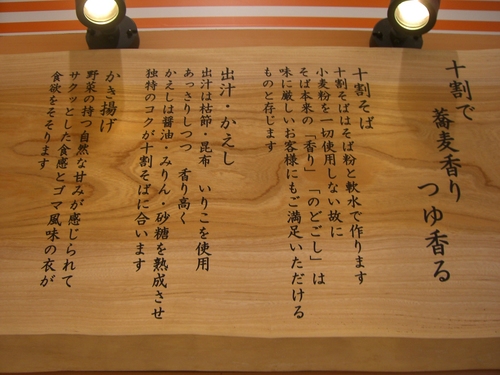 十割で
蕎麦香り
つゆ香る
十割そば
十割そばはそば粉と軟水で作ります
小麦粉を一切使用しない故に
そば本来の「香り」「のどごし」は
味に厳しいお客様にもご満足いただける
ものと存じます
出汁・かえし
出汁は枯節・昆布 いりこを使用
あっさりしつつ 香り高く
かえしは醤油・みりん・砂糖を熟成させ
独特のコクが十割そばに合います
かき揚げ
野菜の持つ自然な甘みが感じられて
サクッとした食感とゴマ風味の衣が
食欲をそそります